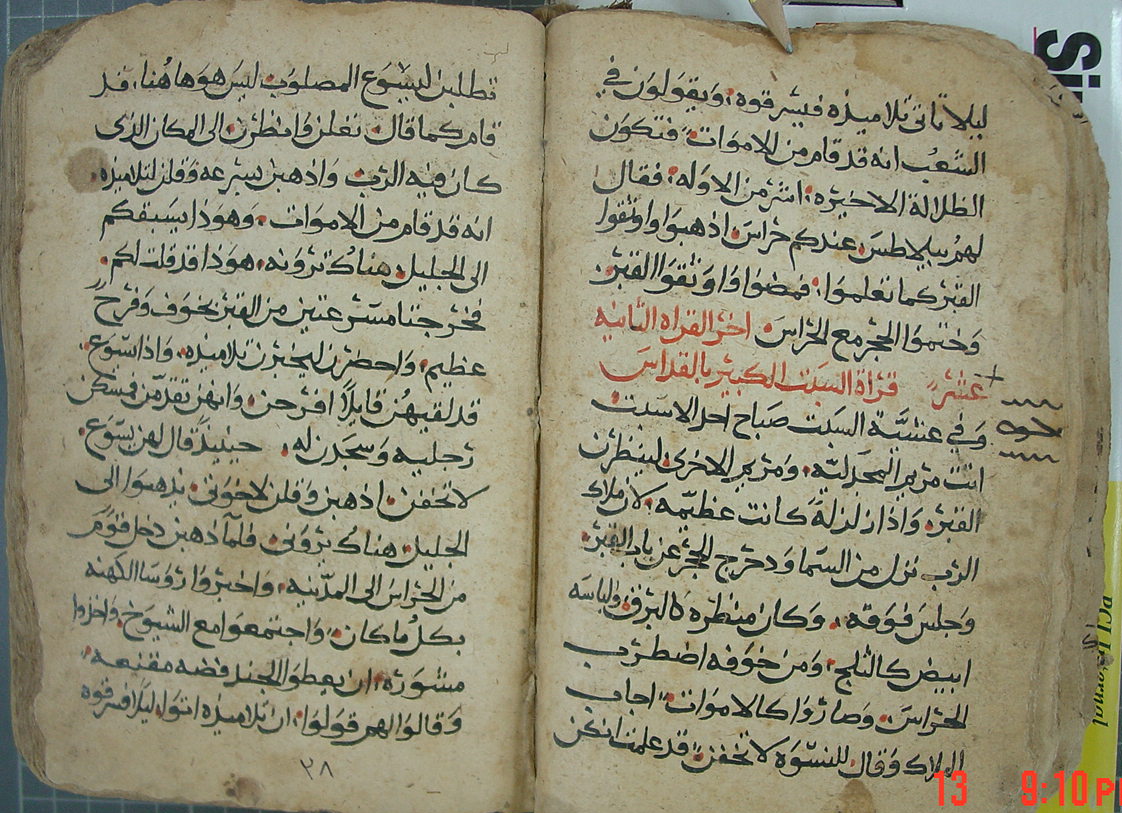 ليلا تاتى تلاميذه فيسرقوه، ويقولون في
الشعب انه قد قام من الاموات فتكون
الظلالة الاخيره، اشر من الاوله، فقال
لهم بيلاطس عندكم حراس اذهبوا واوثقوا
القبر كما تعلموا، فمضوا واوثقوا القبر،
وختموا الحجر مع الحراس. اخر القراه الثانيه
عشر قراة السبت الكبير بالقداس
وفي عشية السبت صباح احد الاسبت
اتت مريم المجدلية، ومريم الاخرى لينظرن
القبر، واذا زلزلة كانت عظيمه، لان ملاك
الرب نزل من السما ودحرج الحجر عن باب القبر،
وجلس فوقه، وكان منظره كالبرق، ولباسه
ابيض كالثلج، ومن خوفه اضطرب
الحراس، وصاروا كالاموات، اجاب
الملاك وقال للنسوه لا تخفن قد علمت انكن
تطلبن ليسوع المصلوب ليس هو هاهنا، قد
قام كما قال، تعلن وانظرن الى المكان الذى
كان فيه الرب واذهبن بسرعه وقلن لتلاميذه،
انه قد قام من الاموات، وهوذا يسبقكم
الى الجليل، هناك ترونه، هوذا قد قلت لكم،
فخرجتا مسرعتين من القبر بخوف وفرح
عظيم، واحضرن ليخبرن تلاميذه، واذا يسوع
قد لقيهن قايلا افرحن، وانهن تقدمن فمسكن
رجليه وسجدن له، حينيذ قال لهن يسوع،
لا تخفن، اذهبن وقلن لاخوتى، يذهبوا الى
الجليل، هناك يرونى، فلما ذهبن دخل قوم
من الحراس الى المدينه، واخبروا روسا الكهنه
بكل ما كان، واجتمعوا مع الشيوخ، واخذوا
مشوره، ان يعطوا للجند فضه مقنعه،
وقالوا لهم قولوا، ان تلاميذه اتوا، ليلا فسرقوه
٢٨
13 9:10 P